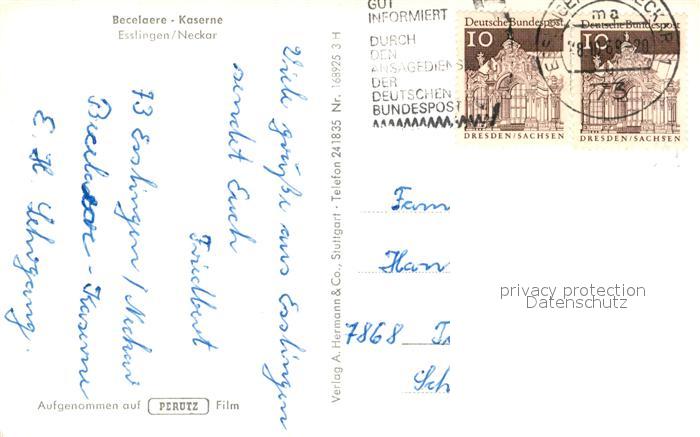 Becelaere - Kaserne
Esslingen/Neckar
Viele Grüße aus Esslingen
sendet Euch
Friedbert
73 Esslingen / Neckar
Becelaere - Kaserne
E. H. Lehrgang.
Aufgenommen auf PERUTZ Film
Verlag A. Hermann & Co., Stuttgart · Telefon 241835 Nr. 168925 3 H
GUT
INFORMIERT
DURCH
DEN
ANSAGEDIENS
DER
DEUTSCHEN
BUNDESPOST
Deutsche Bundespost
10
DRESDEN/SACHSEN
Deutsche Bundespost
10
DRESDEN/SACHSEN
ma
73
Fam
Han
7868 T
Sch
privacy protection
Datenschutz